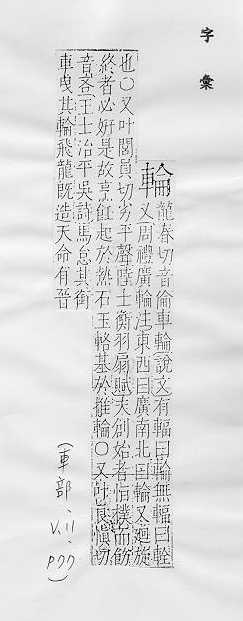 字彙
輪 龍春切音倫車輪說文有輻曰輪無輻曰輇
又周禮廣輪法東西曰廣南北曰輪又迴旋
也○又叶閭員切劣平聲陸士衡羽扇賦夫創始者恒樸而飾
終者必妍是故烹飪起於熱石玉輅基於椎輪○又叶良慎切
音吝王士治平吳詩馬怠其銜
車曳其輪飛龍旣造天命有晉
(車部、V.11、P77)